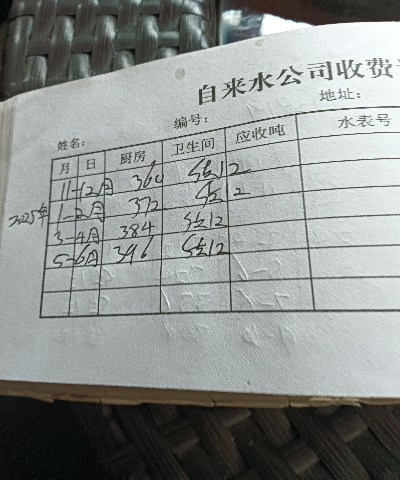 自来水公司收费
姓名： 编号： 地址：
月 日 厨房 卫生间 应收吨 水表号
11-12月 360 12
2025年 1-2月 372 12
3-4月 384 12
5-6月 396 12